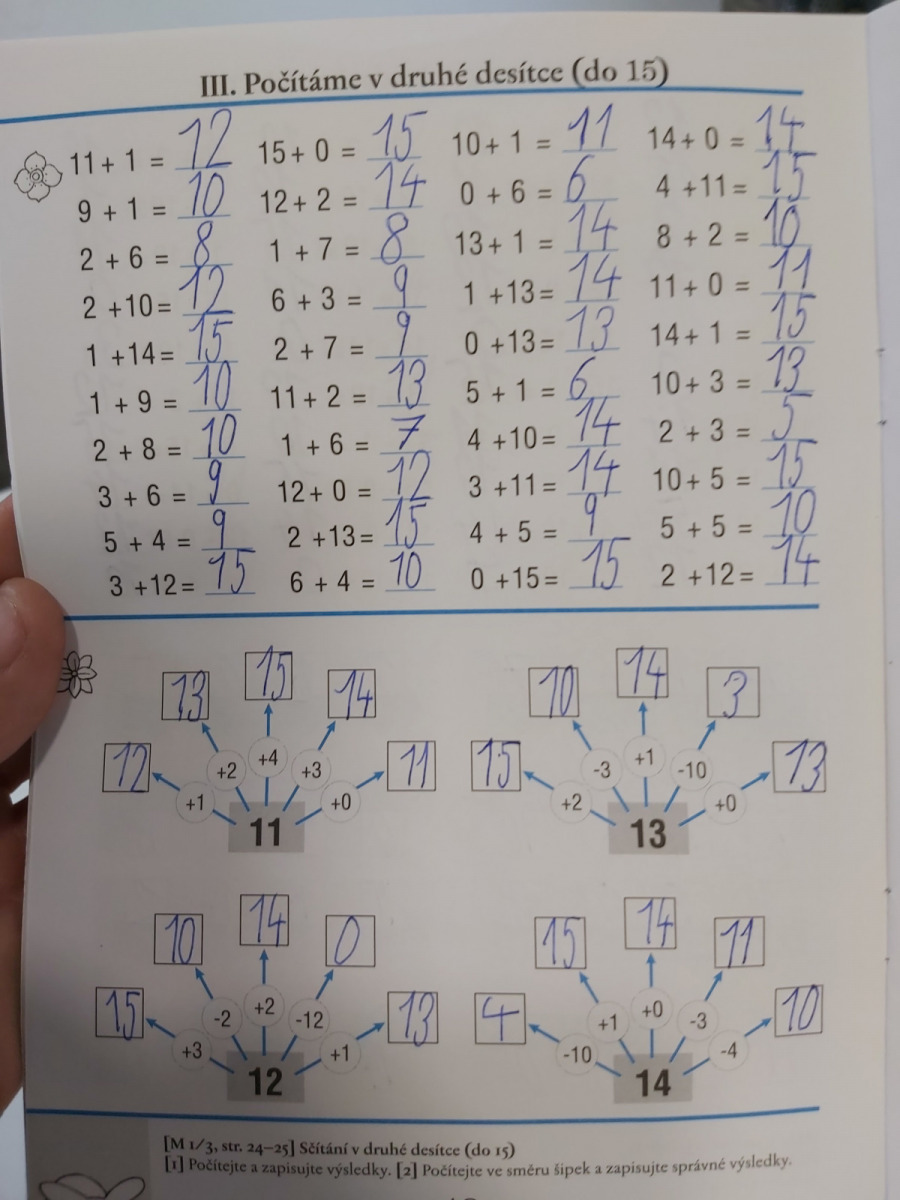 III. Počítáme v druhé desítce (do 15)
11 + 1 = 12 15 + 0 = 15 10 + 1 = 11 14 + 0 = 14
9 + 1 = 10 12 + 2 = 14 0 + 6 = 6 4 + 11 = 15
2 + 6 = 8 1 + 7 = 8 13 + 1 = 14 8 + 2 = 10
2 + 10 = 12 6 + 3 = 9 1 + 13 = 14 11 + 0 = 11
1 + 14 = 15 2 + 7 = 9 0 + 13 = 13 14 + 1 = 15
1 + 9 = 10 11 + 2 = 13 5 + 1 = 6 10 + 3 = 13
2 + 8 = 10 1 + 6 = 7 4 + 10 = 14 2 + 3 = 5
3 + 6 = 9 12 + 0 = 12 3 + 11 = 14 10 + 5 = 15
5 + 4 = 9 2 + 13 = 15 4 + 5 = 9 5 + 5 = 10
3 + 12 = 15 6 + 4 = 10 0 + 15 = 15 2 + 12 = 14
12 13 15 14 11
+1 +2 +4 +3 +0
11
15 10 14 3 13
+2 -3 +1 -10 +0
13
15 10 14 0 13
+3 -2 +2 -12 +1
12
4 15 14 11 10
-10 +1 +0 -3 -4
14
[M 1/3, str. 24–25] Sčítání v druhé desítce (do 15)
[1] Počítejte a zapisujte výsledky. [2] Počítejte ve směru šipek a zapisujte správné výsledky.